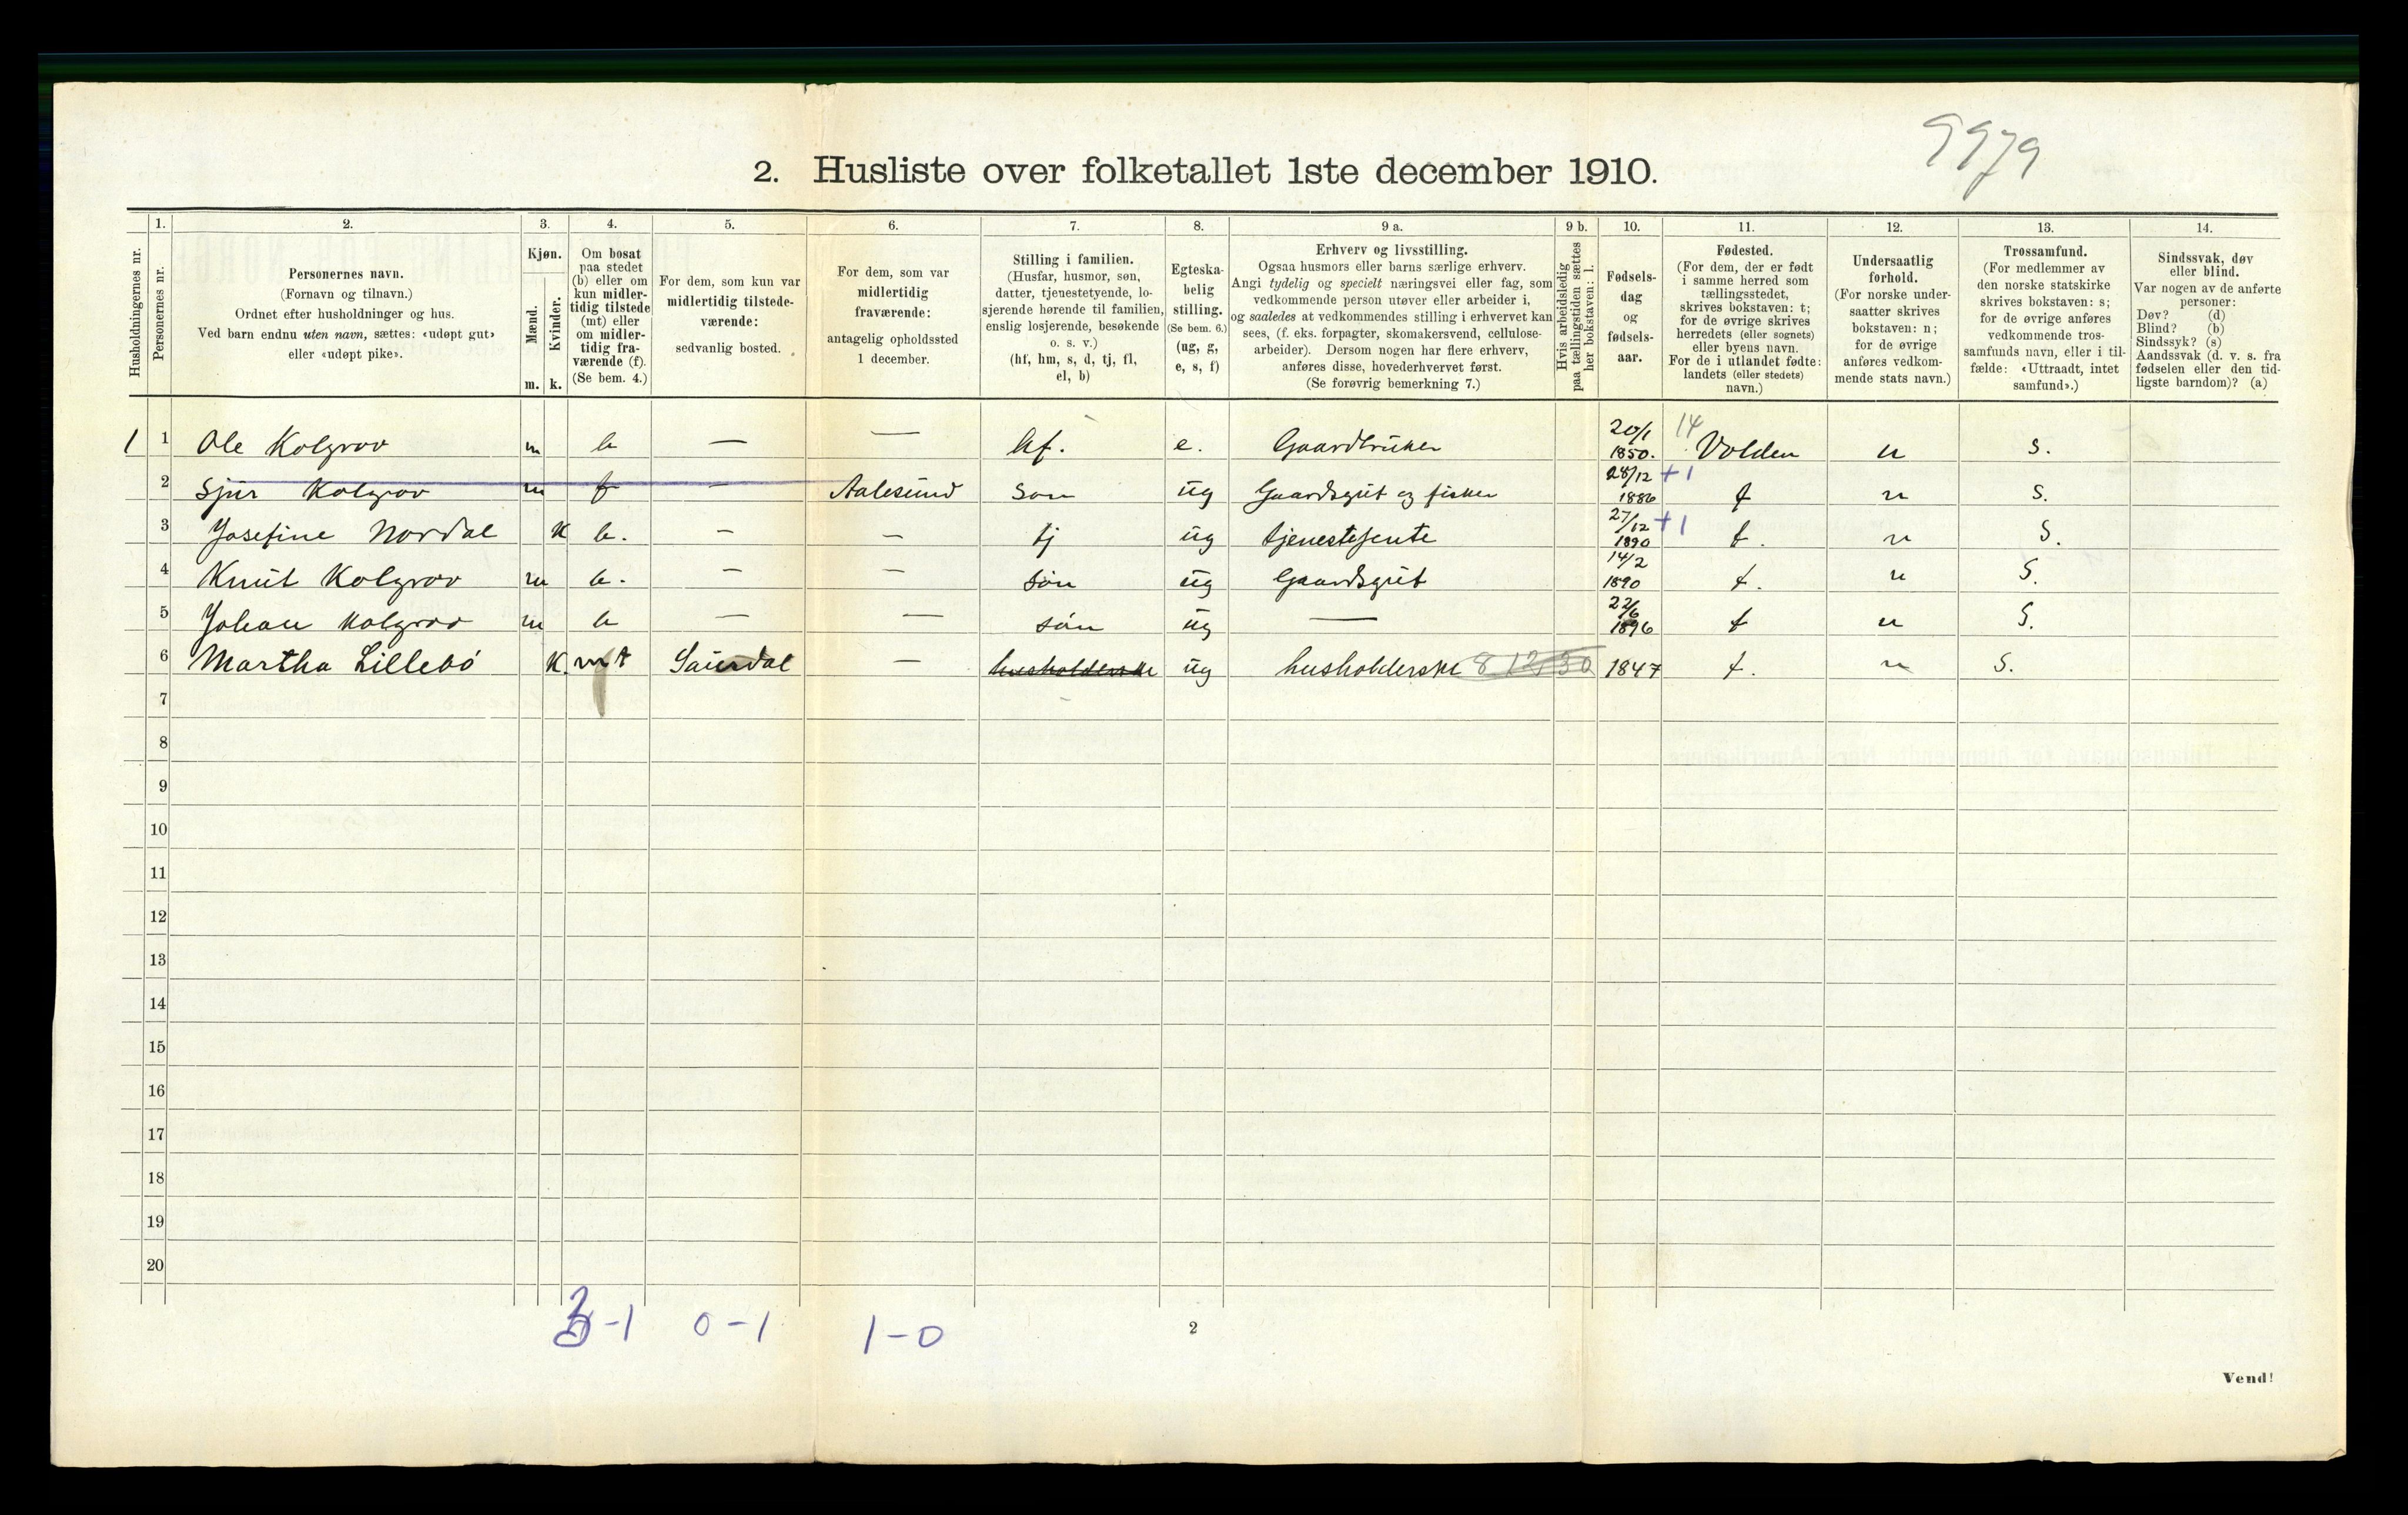 9979
2. Husliste over folketallet 1ste december 1910.
1. 2. 3. 4. 5. 6. 7. 8. 9 a. 9 b. 10. 11. 12. 13. 14.
Husholdningernes nr.
Personernes nr.
Personernes navn.
(Fornavn og tilnavn.)
Ordnet efter husholdninger og hus.
Ved barn endnu uten navn, sættes: «udøpt gut»
eller «udøpt pike».
Kjøn.
Mænd.
Kvinder.
m. k.
Om bosat
paa stedet
(b) eller om
kun midler-
tidig tilstede
(mt) eller
om midler-
tidig fra-
værende (f).
(Se bem. 4.)
For dem, som kun var
midlertidig tilstede-
værende:
sedvanlig bosted.
For dem, som var
midlertidig
fraværende:
antagelig opholdssted
1 december.
Stilling i familien.
(Husfar, husmor, søn,
datter, tjenestetyende, lo-
sjerende hørende til familien,
enslig losjerende, besøkende
o. s. v.)
(hf, hm, s, d, tj, fl,
el, b)
Egteska-
belig
stilling.
(Se bem. 6.)
(ug, g,
e, s, f)
Erhverv og livsstilling.
Ogsaa husmors eller barns særlige erhverv.
Angi tydelig og specielt næringsvei eller fag, som
vedkommende person utøver eller arbeider i,
og saaledes at vedkommendes stilling i erhvervet kan
sees, (f. eks. forpagter, skomakersvend, cellulose-
arbeider). Dersom nogen har flere erhverv,
anføres disse, hovederhvervet først.
(Se forøvrig bemerkning 7.)
Hvis arbeidsledig
paa tællingstiden sættes
her bokstaven: l.
Fødsels-
dag
og
fødsels-
aar.
Fødested.
(For dem, der er født
i samme herred som
tællingsstedet,
skrives bokstaven: t;
for de øvrige skrives
herredets (eller sognets)
eller byens navn.
For de i utlandet fødte:
landets (eller stedets)
navn.)
Undersaatlig
forhold.
(For norske under-
saatter skrives
bokstaven: n;
for de øvrige
anføres vedkom-
mende stats navn.)
Trossamfund.
(For medlemmer av
den norske statskirke
skrives bokstaven: s;
for de øvrige anføres
vedkommende tros-
samfunds navn, eller i til-
fælde: «Uttraadt, intet
samfund».)
Sindssvak, døv
eller blind.
Var nogen av de anførte
personer:
Døv? (d)
Blind? (b)
Sindssyk? (s)
Aandssvak (d. v. s. fra
fødselen eller den tid-
ligste barndom)? (a)
1 1 Ole Kolgrov m b — — hf. e. Gaardbruker 20/1 1850. 14 Volden n s.
2 Sjur Kolgrov m f - Aalesund Søn ug Gaardsgut og fisker 28/12 1886 +1 t n s.
3 Josefine Nordal K b. - - tj ug tjenestejente 27/12 1890 +1 t. n S.
4 Knut Kolgrov m b. - - søn ug Gaardsgut 14/2 1890 t. n S.
5 Johan Kolgrov m b — — søn ug — 22/6 1896 t n S.
6 Martha Lillebø K. mt Saurdal — husholderske ug husholderske 8 12,30 1847 t. n S.
7
8
9
10
11
12
13
14
15
16
17
18
19
20
3-1 0-1 1-0
2
Vend!